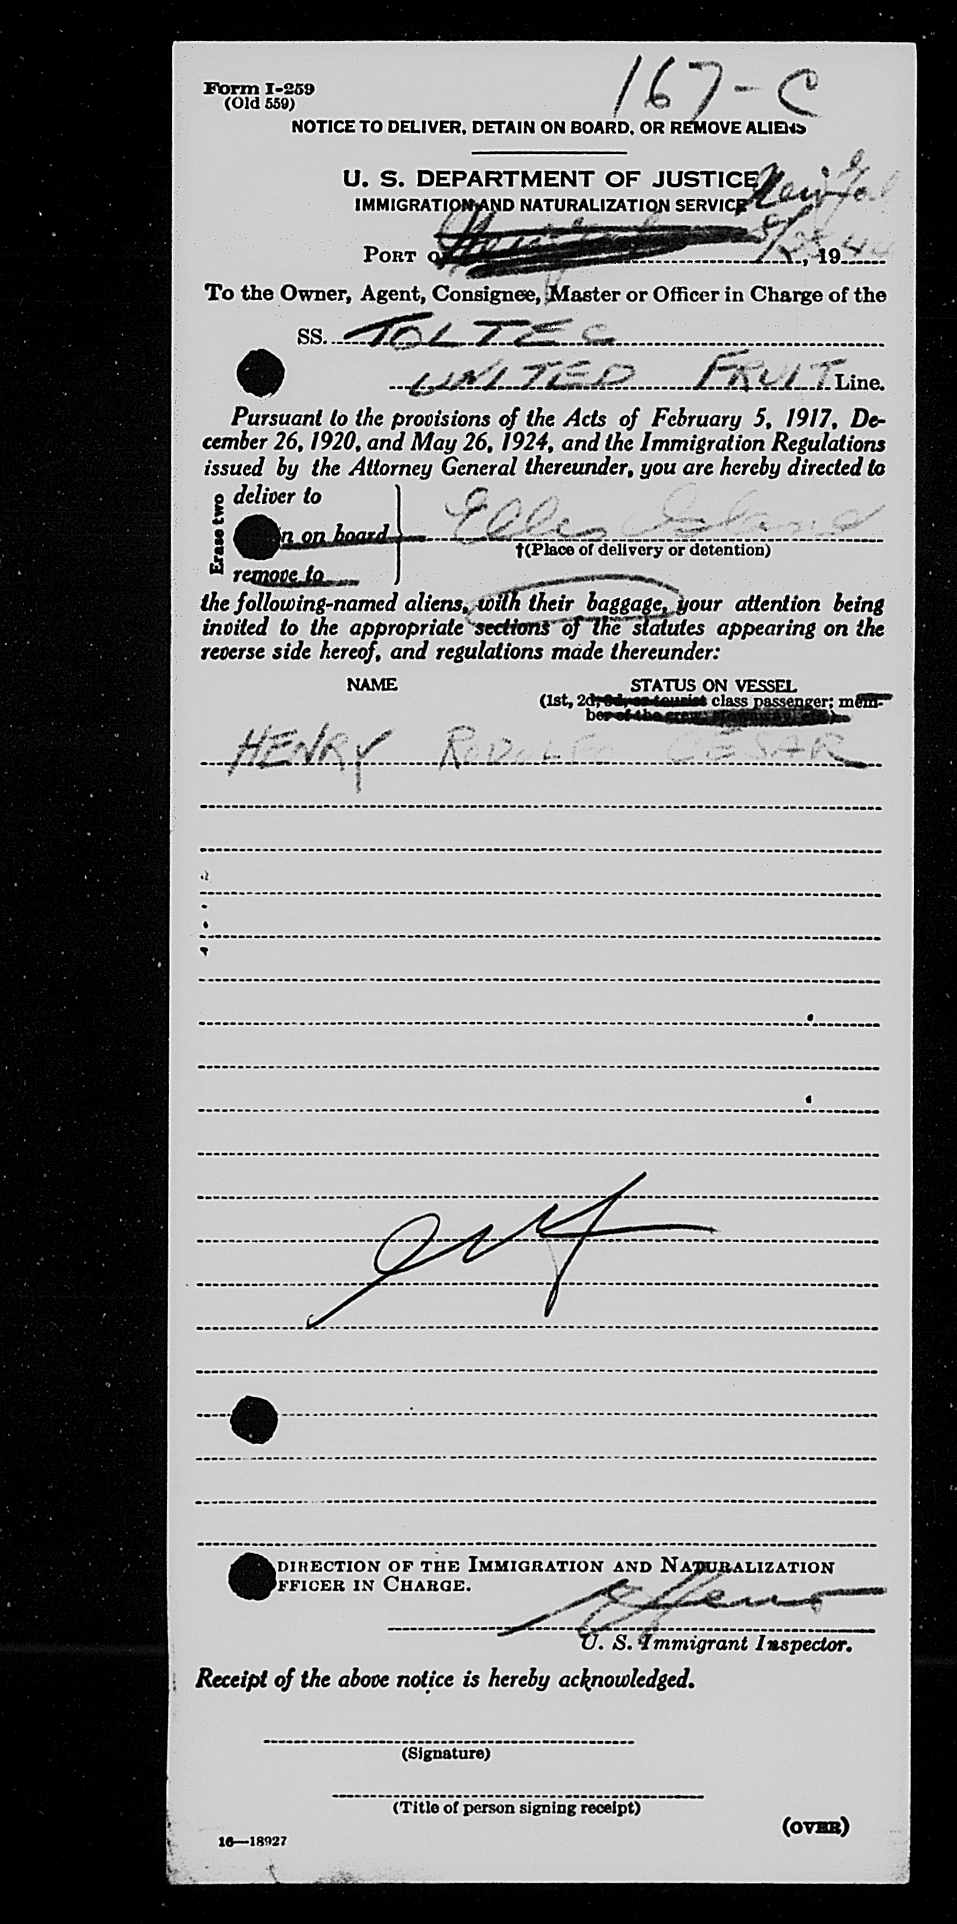 167-C
Form I-259
(Old 559)
NOTICE TO DELIVER, DETAIN ON BOARD, OR REMOVE ALIENS
U. S. DEPARTMENT OF JUSTICE
IMMIGRATION AND NATURALIZATION SERVICE
PORT , 19
To the Owner, Agent, Consignee, Master or Officer in Charge of the
SS. TOLTEC
UNITED FRUIT Line.
Pursuant to the provisions of the Acts of February 5, 1917, De-
cember 26, 1920, and May 26, 1924, and the Immigration Regulations
issued by the Attorney General thereunder, you are hereby directed to
Erase two
deliver to
n on board
Ellis Island
†(Place of delivery or detention)
remove to
the following-named aliens, with their baggage, your attention being
invited to the appropriate sections of the statutes appearing on the
reverse side hereof, and regulations made thereunder:
NAME STATUS ON VESSEL
(1st, 2d, 3d, or tourist class passenger; mem-
ber of the crew
HENRY RODOLFO CESAR
DIRECTION OF THE IMMIGRATION AND NATURALIZATION
FFICER IN CHARGE.
U. S. Immigrant Inspector.
Receipt of the above notice is hereby acknowledged.
(Signature)
(Title of person signing receipt)
(OVER)
16—18927